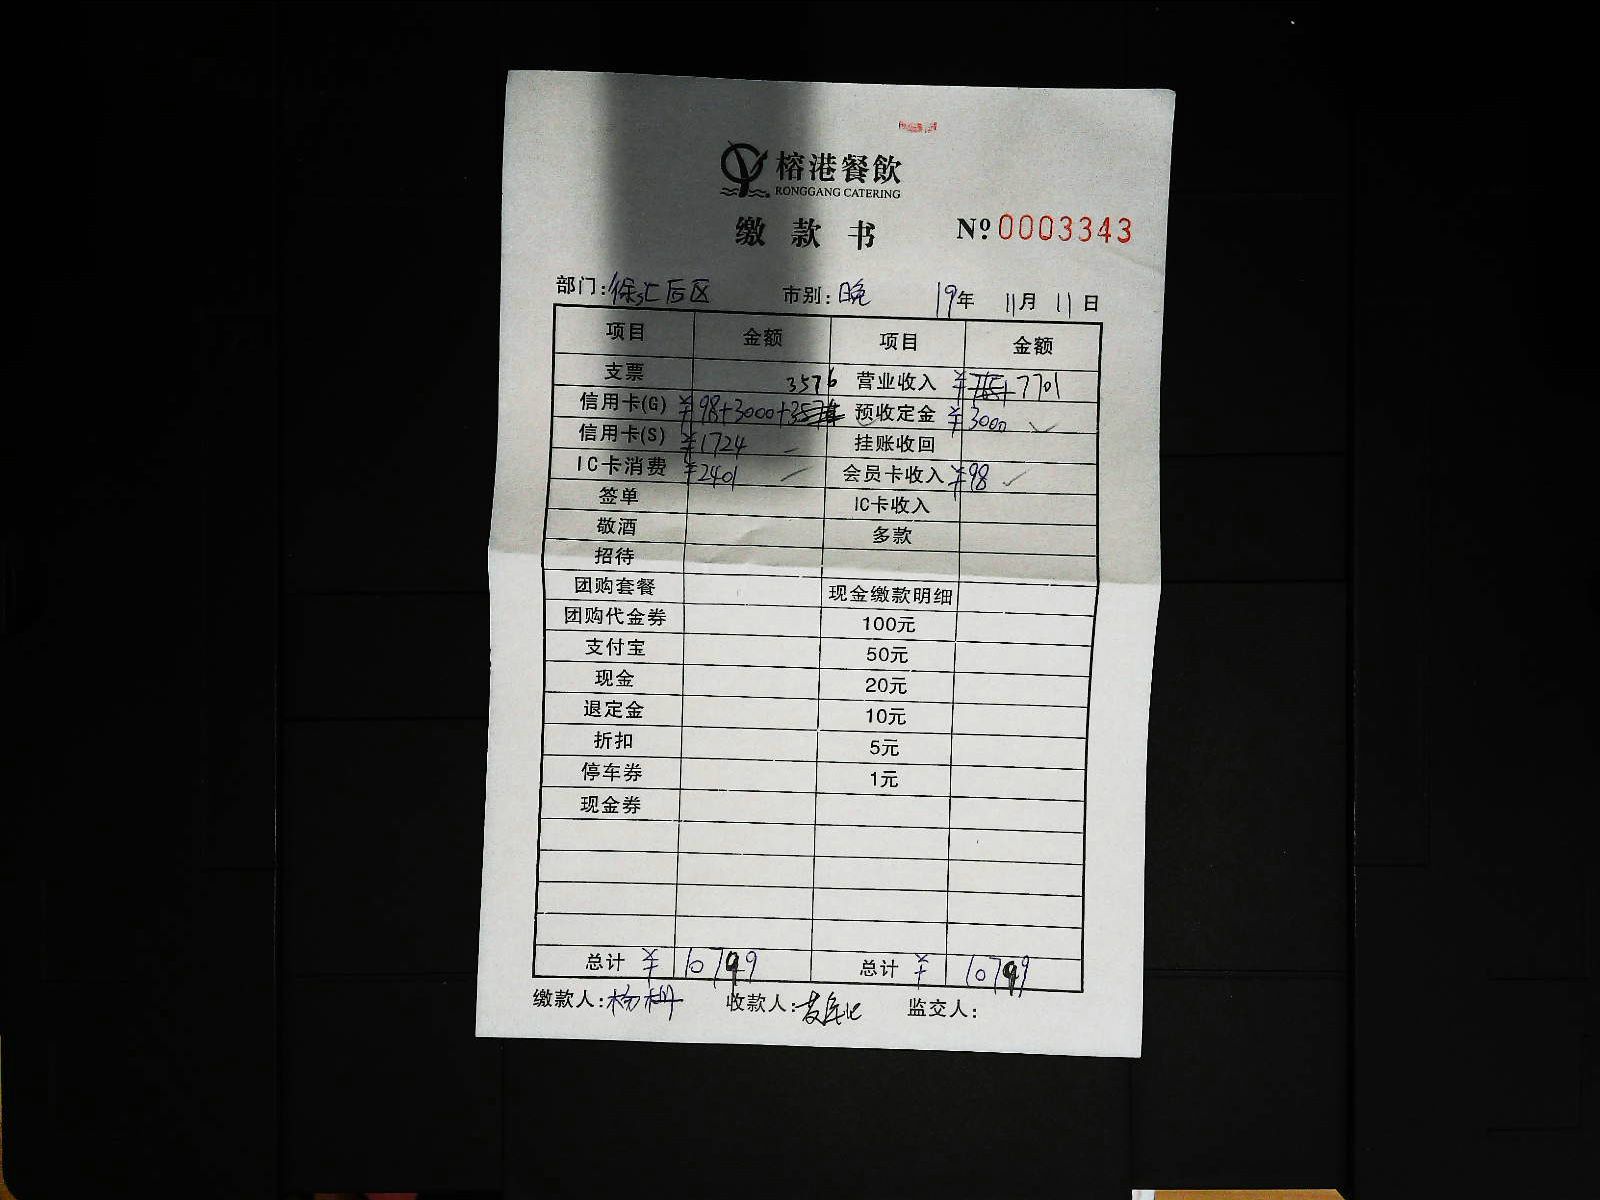 榕港餐飲
RONGGANG CATERING
缴款书 Nº 0003343
部门:徐汇后区 市别:晚 19年 11月 11日
项目 金额 项目 金额
支票 3576 营业收入 ¥ 7701
信用卡(G) ¥98+3000+ 预收定金 ¥3000
信用卡(S) ¥1724 挂账收回
IC卡消费 ¥2401 会员卡收入 ¥98
签单 IC卡收入
敬酒 多款
招待
团购套餐 现金缴款明细
团购代金券 100元
支付宝 50元
现金 20元
退定金 10元
折扣 5元
停车券 1元
现金券
总计 ¥ 10799 总计 ¥ 10799
缴款人:杨 收款人: 监交人: